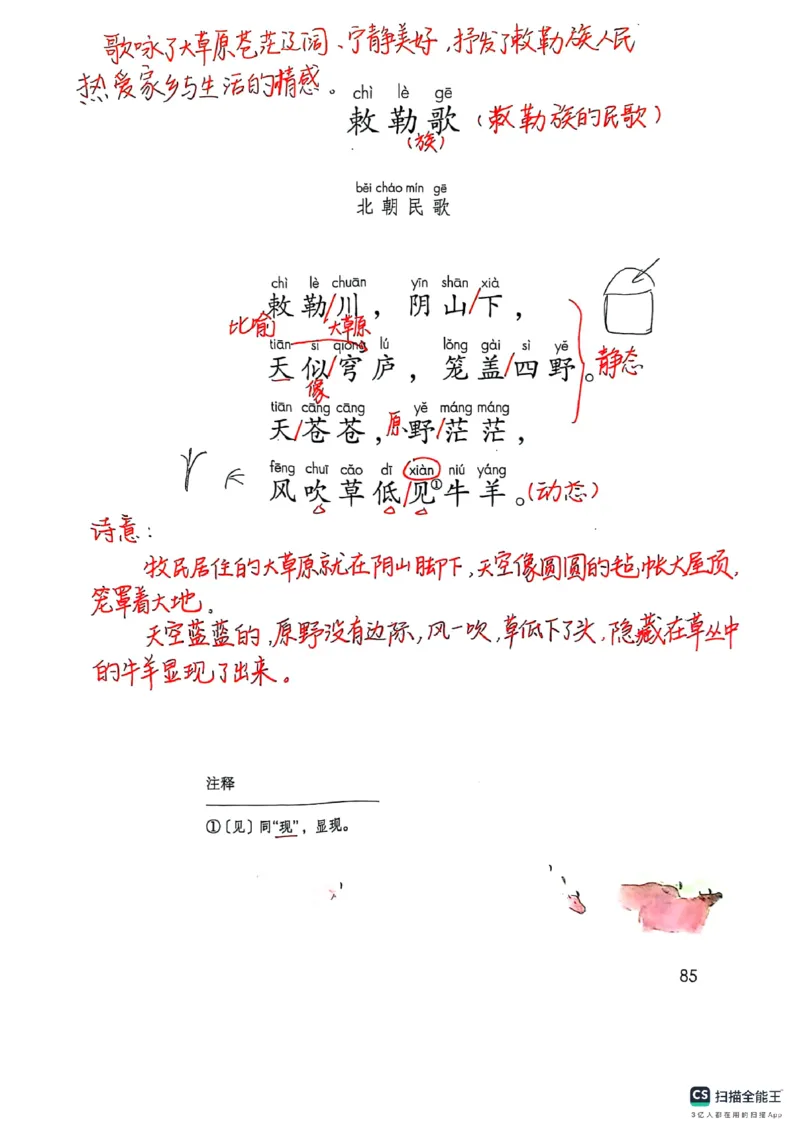 歌咏了大草原苍茫辽阔、宁静美好,抒发了敕勒族人民
热爱家乡与生活的情感。
chì lè gē
敕勒歌(敕勒族的民歌)
(族)
běi cháo mín gē
北朝民歌
chì lè chuān yīn shān xià
敕勒/川,阴山/下,
比喻 大草原
tiān sì qióng lú lǒng gài sì yě
天似/穹庐,笼盖/四野。静态
像
tiān cāng cāng yě máng máng
天/苍苍,原野/茫茫,
fēng chuī cǎo dī xiàn niú yáng
风吹草低/见①牛羊。(动态)
诗意:
牧民居住的大草原就在阴山脚下,天空像圆圆的毡帐大屋顶,
笼罩着大地。
天空蓝蓝的,原野没有边际,风一吹,草低下了头,隐藏在草丛中
的牛羊显现了出来。
注释
①〔见〕同“现”,显现。
85
CS 扫描全能王
3亿人都在用的扫描App